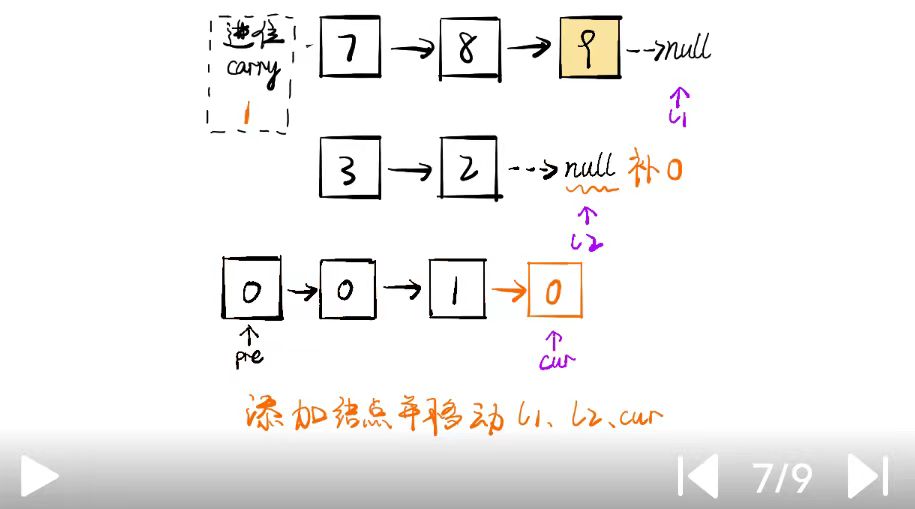 进位
carry
1
7 8 9 null
l1
3 2 null 补0
l2
0 0 1 0
pre cur
添加结点并移动 l1、l2、cur
7/9